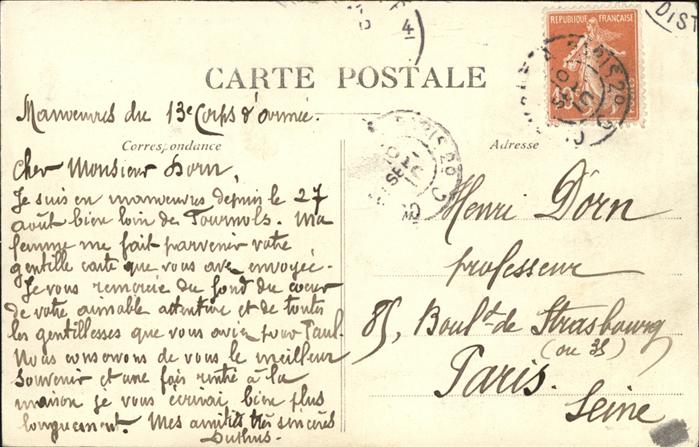 4
DIST
REPUBLIQUE FRANÇAISE
CARTE POSTALE
Manœuvres du 13e Corps d'armée.
Correspondance
Adresse
Cher Monsieur Dorn,
Je suis en manœuvres depuis le 27
août bien loin de Tournols. Ma
femme me fait parvenir votre
gentille carte que vous avez envoyée.
Je vous remercie du fond du cœur
de votre aimable attention et de toutes
les gentillesses que vous aviez pour Paul.
Nous conservons de vous le meilleur
souvenir et une fois rentré à la
maison je vous écrirai bien plus
longuement. Mes amitiés très sincères
Henri Dörn
professeur
85, Bould de Strasbourg
(ou 35)
Paris.
Seine